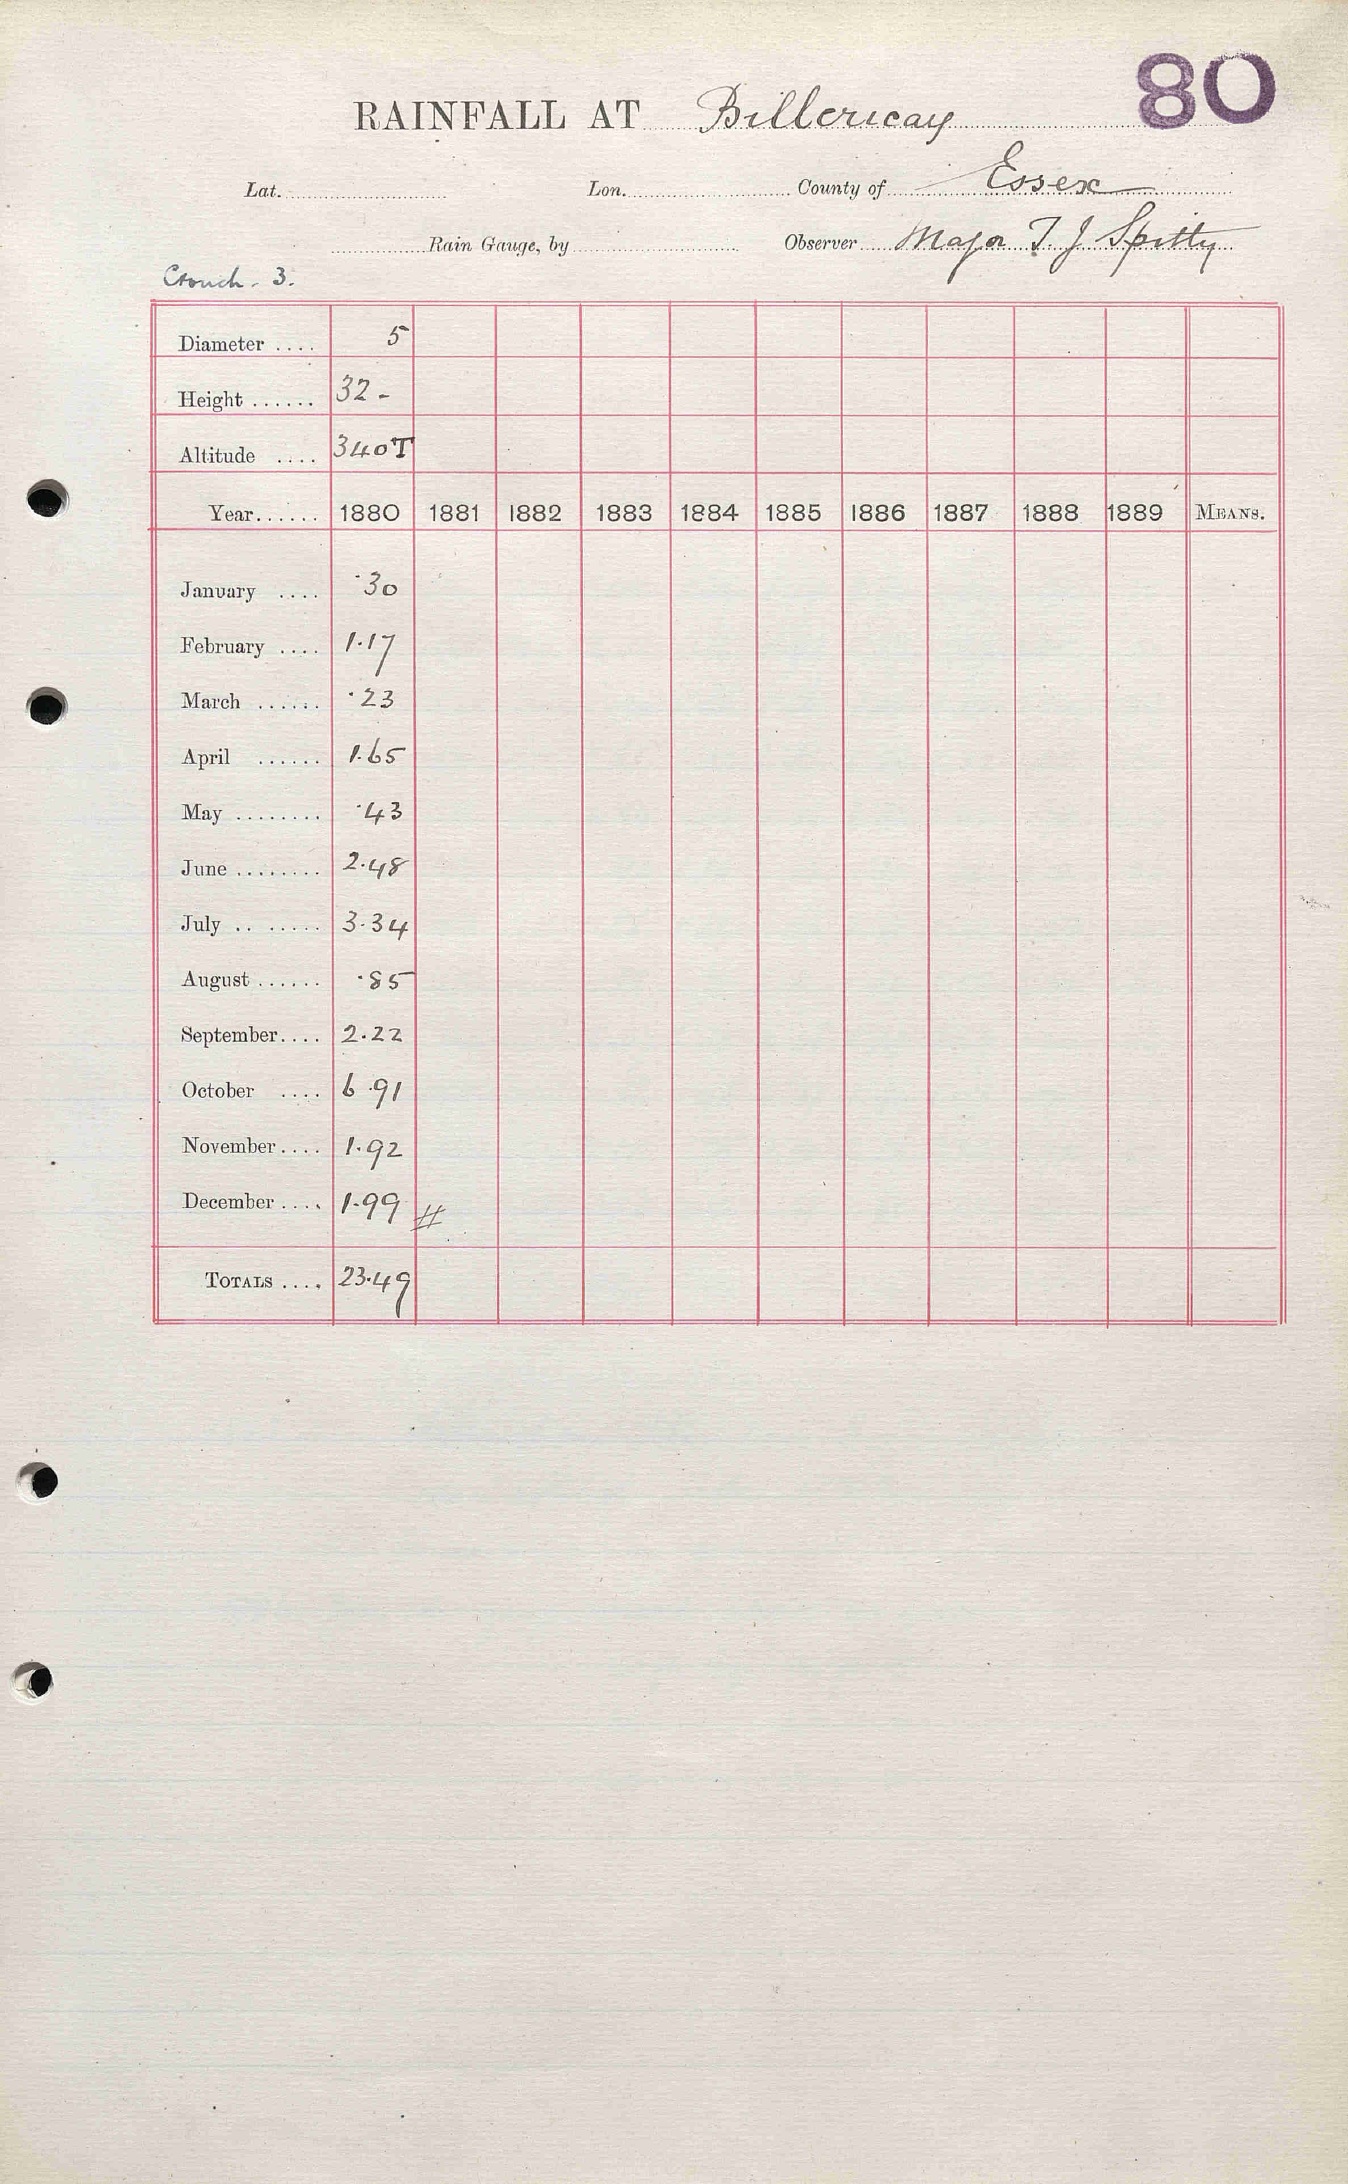 80
RAINFALL AT Billericay
Lat. Lon. County of Essex
Rain Gauge, by Observer Major T J Spitty
Crouch. 3.
Diameter .... 5
Height ...... 32 -
Altitude .... 340T
Year...... 1880 1881 1882 1883 1884 1885 1886 1887 1888 1889 MEANS.
January .... ·30
February .... 1·17
March ...... ·23
April ...... 1·65
May ........ ·43
June ........ 2·48
July .. ...... 3·34
August ...... ·85
September.... 2·22
October .... 6·91
November.... 1·92
December .... 1·99 #
TOTALS .... 23·49